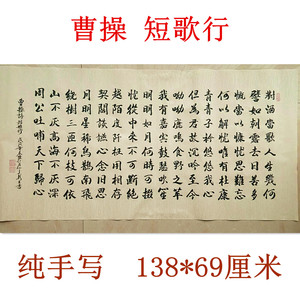 曹操 短歌行
對酒當歌人生幾何
譬如朝露去日苦多
慨當以慷憂思難忘
何以解憂唯有杜康
青青子衿悠悠我心
但為君故沉吟至今
呦呦鹿鳴食野之苹
我有嘉賓鼓瑟吹笙
明明如月何時可掇
憂從中來不可斷絕
越陌度阡枉用相存
契闊談讌心念舊恩
月明星稀烏鵲南飛
繞樹三匝何枝可依
山不厌高海不厌深
周公吐哺天下歸心
曹操詩短歌行
纯手写 138*69厘米